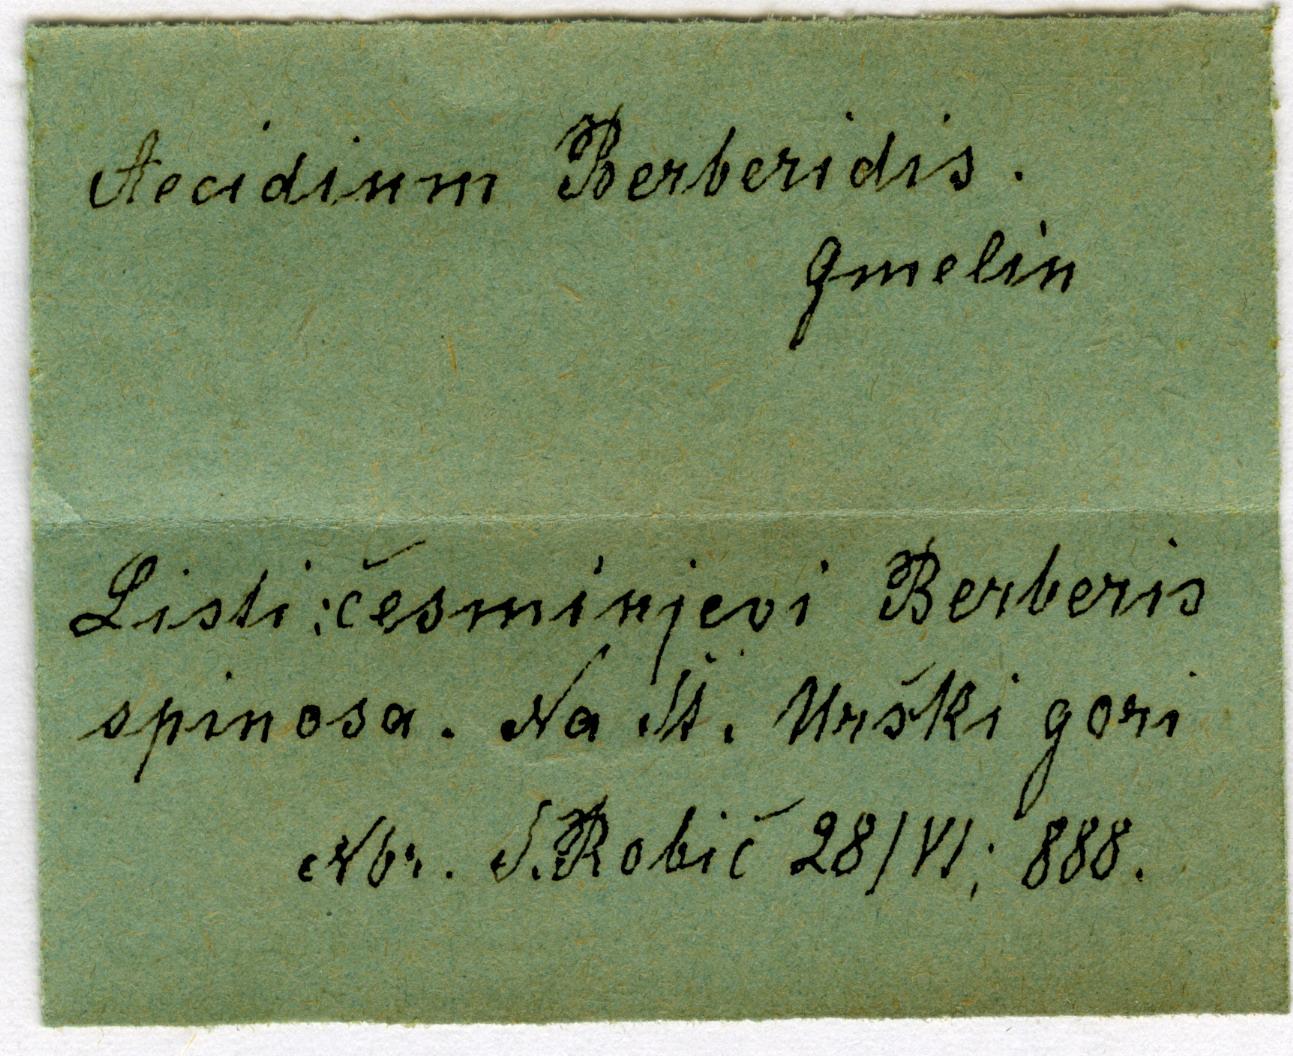 Aecidium Berberidis.
Gmelin
Listi česminjevi Berberis
spinosa. Na Št. Urški gori
Nbr. S. Robič 28/VI; 888.